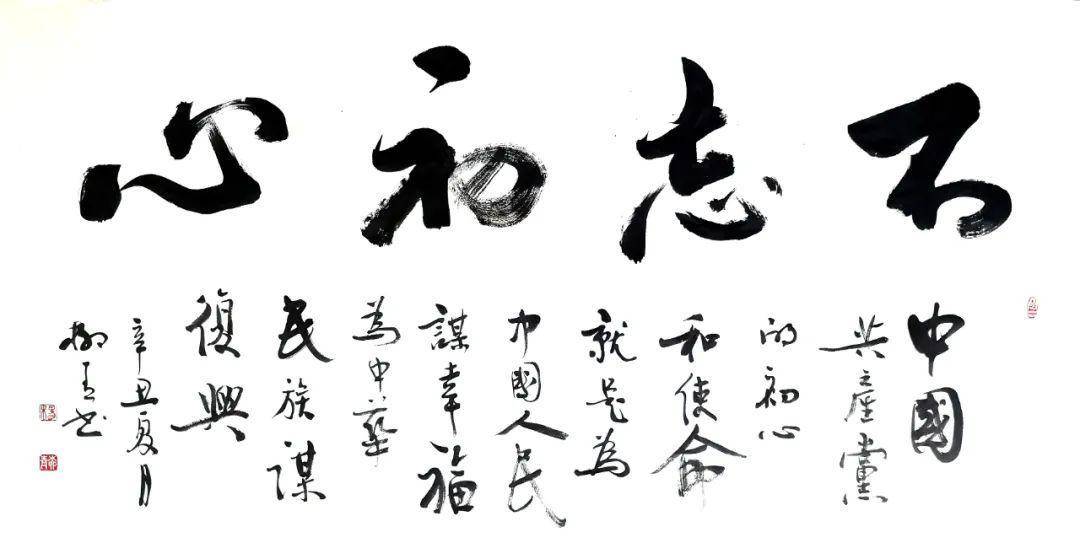 不忘初心
中國
共産黨
的初心
和使命
就是為
中國人民
謀幸福
為中華
民族謀
復興
辛丑夏月
书